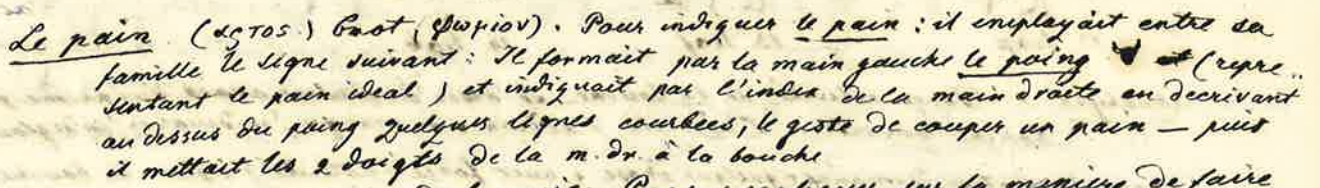 Le pain (αρτος) Brot, (ψωμιον). Pour indiquer le pain : il employait entre sa
famille le signe suivant : Il formait par la main gauche le poing et (repre..
sentant le pain ideal) et indiquait par l'index de la main droite en decrivant
au dessus du poing quelques lignes courbées, le geste de couper un pain — puis
il mettait les 2 doigts de la m. dr. à la bouche
Pour sur la maniere de faire